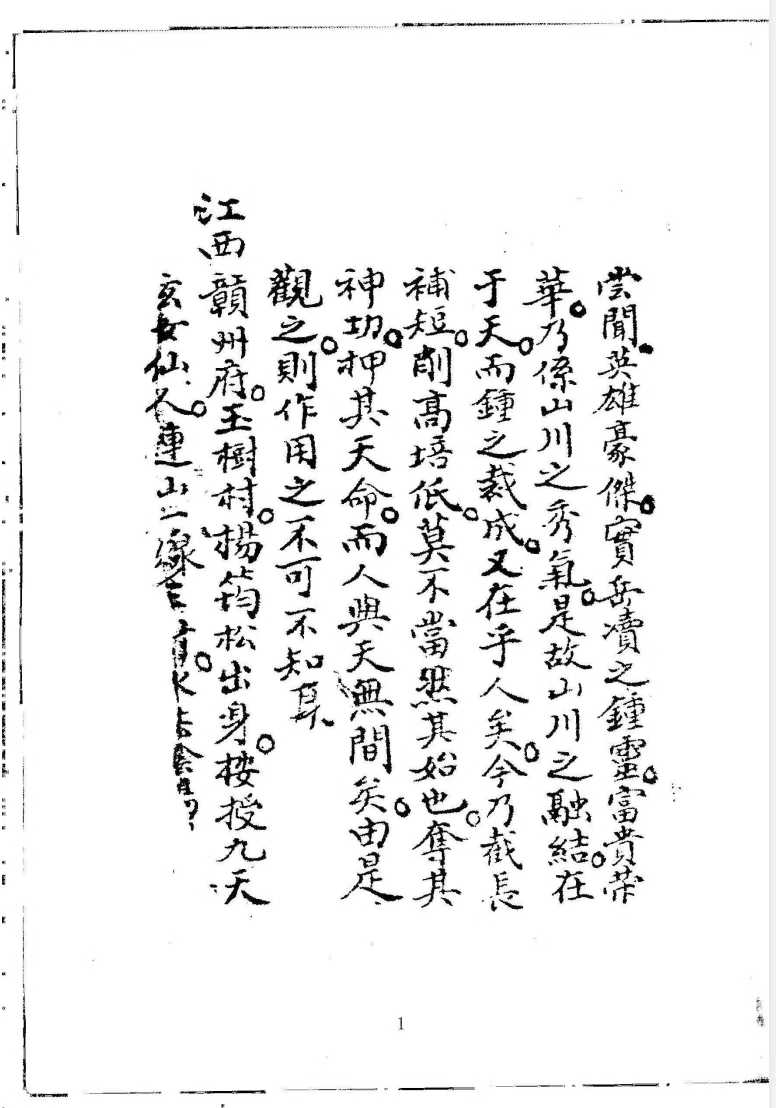 尝聞英雄豪傑。實岳瀆之鍾靈。富貴荣
華。乃係山川之秀氣。是故山川之融結。在
于天。而鍾之裁成。又在乎人矣。今乃截長
補短。削高培低。莫不當然其始也。奪其
神功。押其天命。而人與天無間矣。由是
觀之。則作用之不可不知耳
江西贛州府。玉樹村。楊筠松出身。授九天
玄女仙人。連山
1